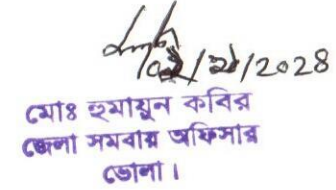 /2028
মোঃ হুমায়ুন কবির
জেলা সমবায় অফিসার
ভোলা।